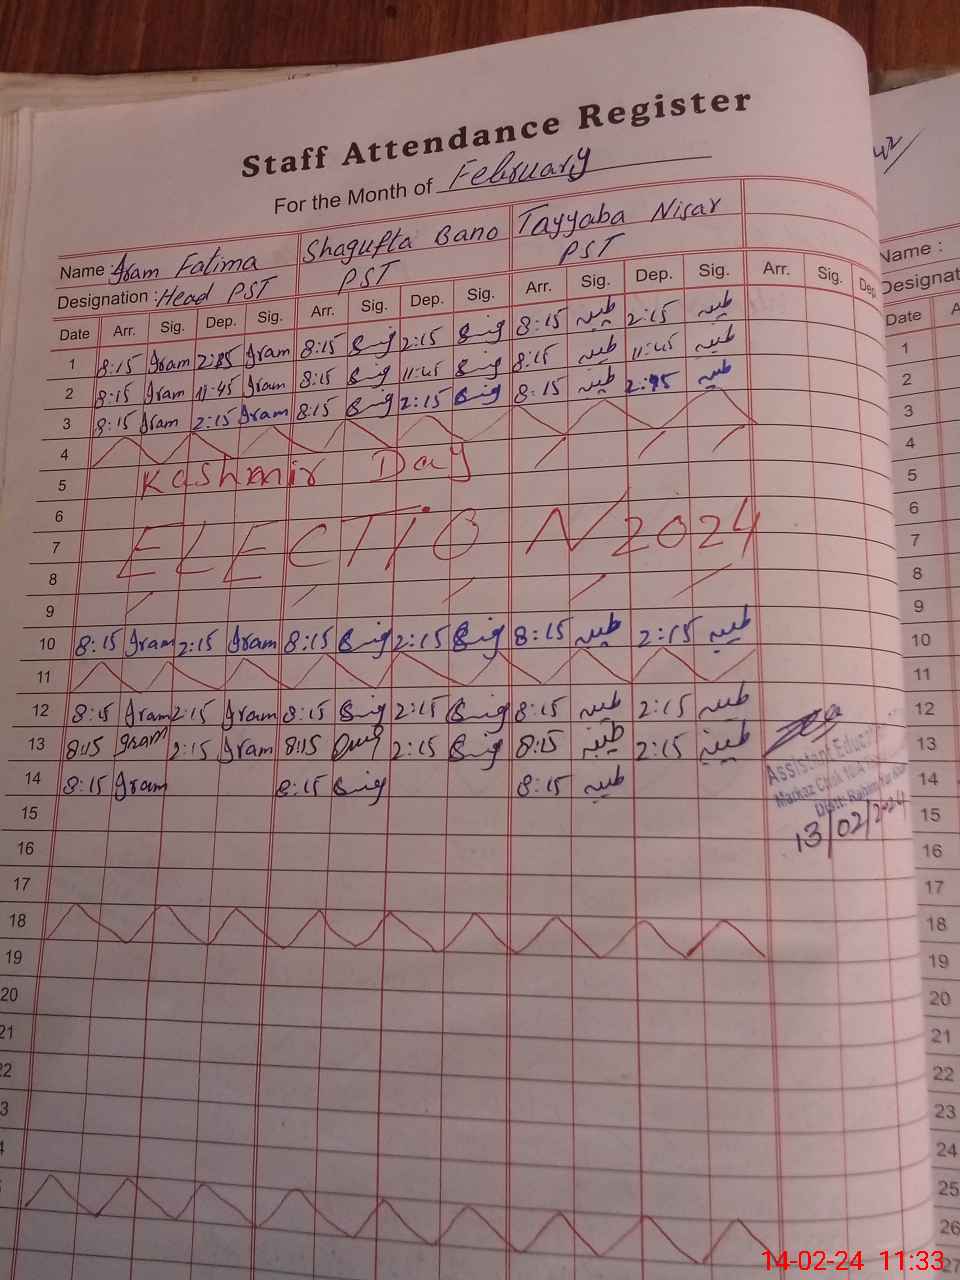 Staff Attendance Register
For the Month of February
Name : Iram Fatima Shagufta Bano Tayyaba Nisar
Designation : Head PST PST PST
Date Arr. Sig. Dep. Sig. Arr. Sig. Dep. Sig. Arr. Sig. Dep. Sig. Arr. Sig. Dep.
1 8:15 Iram Iram 8:15 2:15 8:15 طیبہ 2:15 طیبہ
2 8:15 Iram 11:45 Iram 8:15 11:45 8:15 طیبہ 11:45 طیبہ
3 8:15 Iram 2:15 Iram 8:15 2:15 8:15 طیبہ طیبہ
4
5 Kashmir Day
6
7 ELECTION 2024
8
9
10 8:15 Iram 2:15 Iram 8:15 2:15 8:15 طیبہ 2:15 طیبہ
11
12 8:15 Iram 2:15 Iram 8:15 2:15 8:15 طیبہ 2:15 طیبہ
13 8:15 Iram 2:15 Iram 8:15 2:15 8:15 طیبہ 2:15 طیبہ
14 8:15 Iram 8:15 8:15 طیبہ
Assistant
Markaz
13/02/2024
15
16
17
18
19
20
21
22
Name :
Designat
Date A
1
2
3
4
5
6
7
8
9
10
11
12
13
14
15
16
17
18
19
20
21
22
23
24
25
26
27
14-02-24 11:33